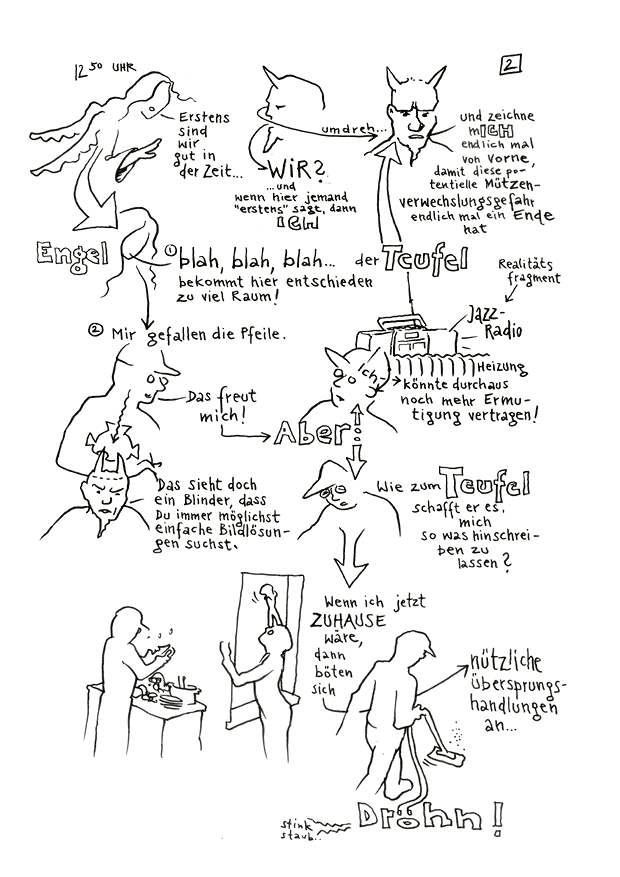 12 50 UHR
2
Erstens
sind
wir
gut in
der Zeit...
umdreh...
WiR?
...und
wenn hier jemand
"erstens" sagt, dann
ICH
und zeichne
mICH
endlich mal
von vorne,
damit diese po-
tentielle Mützen-
verwechslungsgefahr
endlich mal ein Ende
hat
Engel
① blah, blah, blah... der Teufel
bekommt hier entschieden
zu viel Raum!
Realitäts
fragment
② Mir gefallen die Pfeile.
Jazz-
Radio
Heizung
Das freut
mich!
Ich
könnte durchaus
noch mehr Ermu-
tigung vertragen!
Aber:
Das sieht doch
ein Blinder, dass
Du immer möglichst
einfache Bildlösun-
gen suchst.
Wie zum Teufel
schafft er es,
mich
so was hinschrei-
ben zu
lassen?
Wenn ich jetzt
ZUHAUSE
wäre,
dann
böten
sich
nützliche
Übersprungs-
handlungen
an...
stink
staub..
Dröhn!